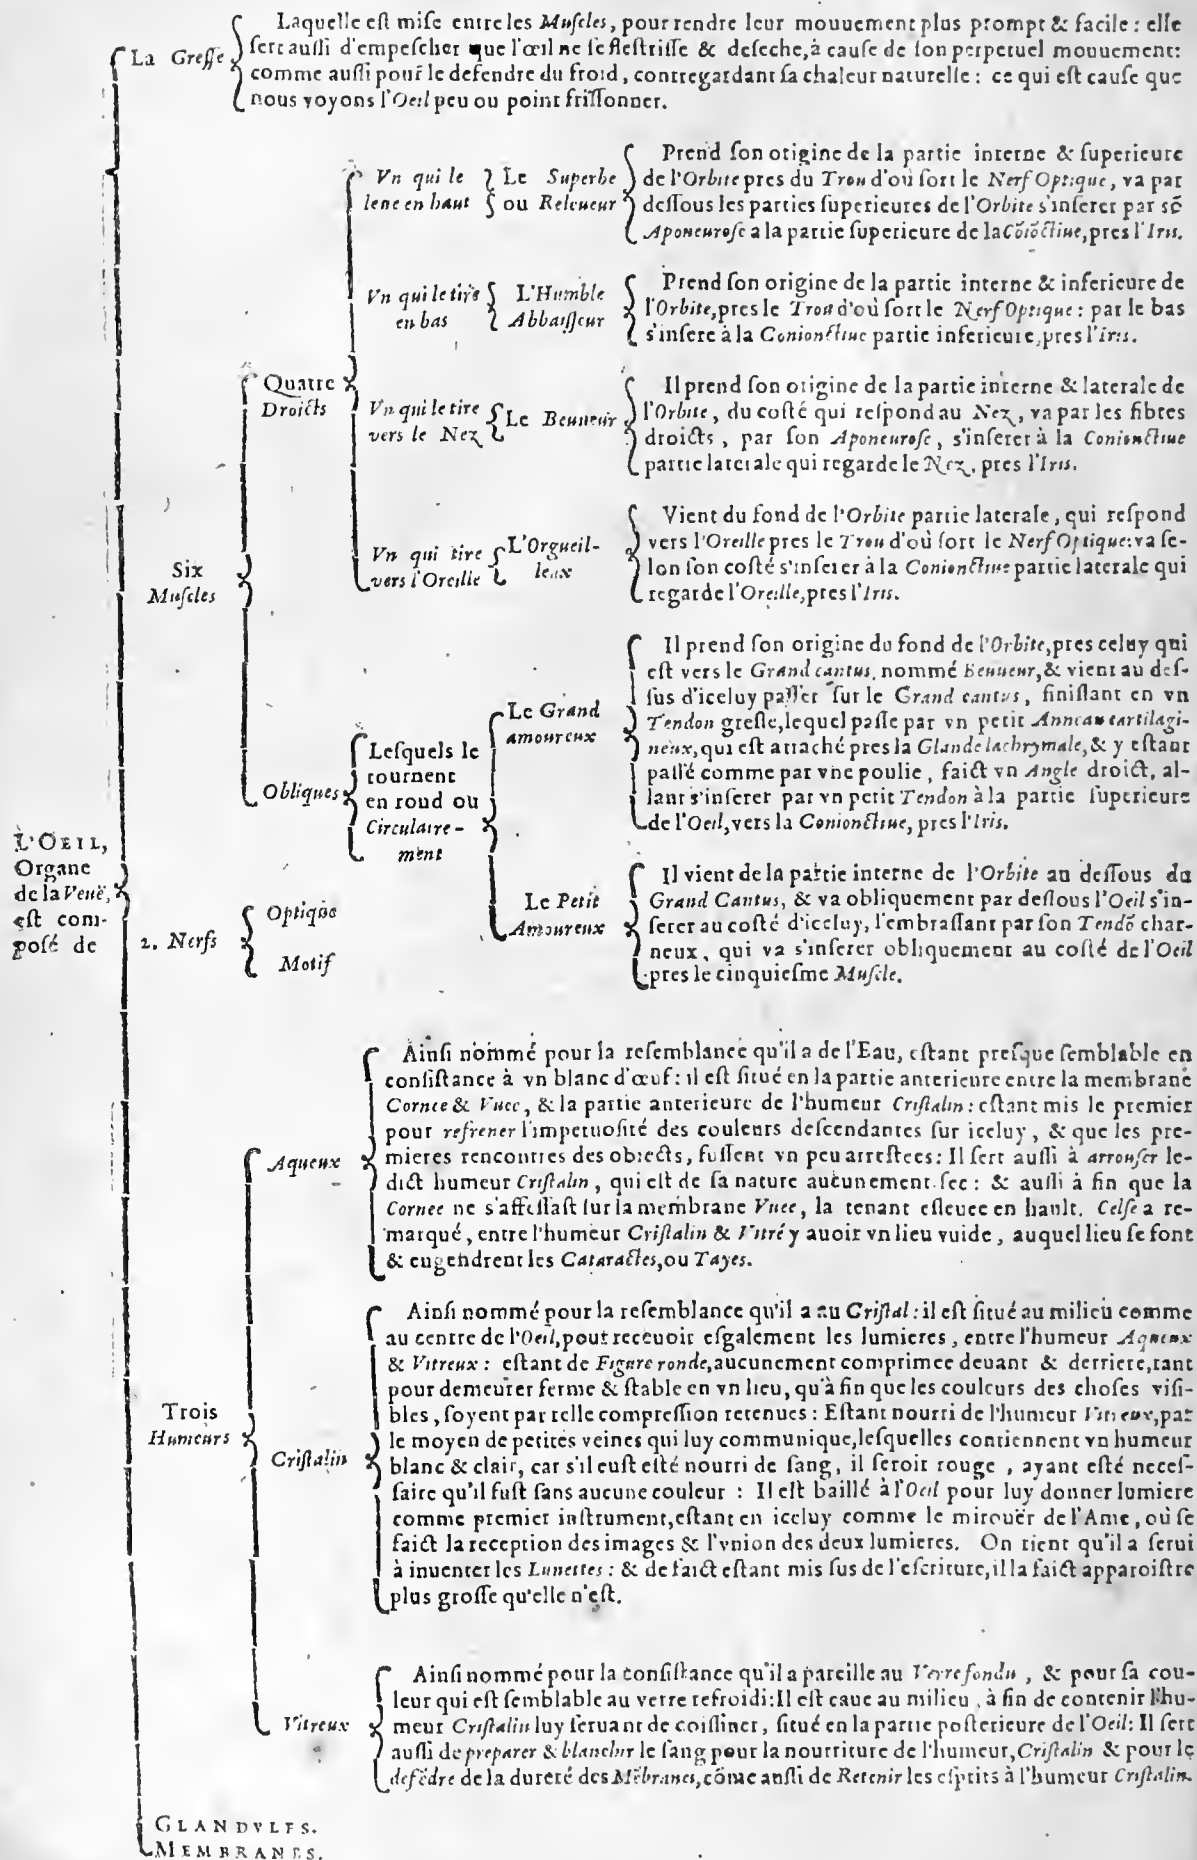 La Gresse
Laquelle eſt miſe entre les Muſcles, pour rendre leur mouuement plus prompt & facile : elle
ſert auſſi d'empeſcher que l'œil ne ſe fleſtriſſe & deſeche, à cauſe de ſon perpetuel mouuement:
comme auſſi pour le defendre du froid, contregardant ſa chaleur naturelle : ce qui eſt cauſe que
nous voyons l'Oeil peu ou point friſſonner.
Six
Muſcles
Quatre
Droicts
Vn qui le
leue en haut
Le Superbe
ou Releueur
Prend ſon origine de la partie interne & ſuperieure
de l'Orbite pres du Trou d'où ſort le Nerf Optique, va par
deſſous les parties ſuperieures de l'Orbite s'inſerer par sõ
Aponeuroſe a la partie ſuperieure de la Cõiõctiue, pres l'Iris.
Vn qui le tire
en bas
L'Humble
Abbaiſſeur
Prend ſon origine de la partie interne & inferieure de
l'Orbite, pres le Trou d'où ſort le Nerf Optique : par le bas
s'inſere à la Conionctiue partie inferieure, pres l'Iris.
Vn qui le tire
vers le Nez
Le Beuueur
Il prend ſon origine de la partie interne & laterale de
l'Orbite, du coſté qui reſpond au Nez, va par les fibres
droicts, par ſon Aponeuroſe, s'inſerer à la Conionctiue
partie laterale qui regarde le Nez, pres l'Iris.
Vn qui tire
vers l'Oreille
L'Orgueil-
leux
Vient du fond de l'Orbite partie laterale, qui reſpond
vers l'Oreille pres le Trou d'où ſort le Nerf Optique: va ſe-
lon ſon coſté s'inſerer à la Conionctiue partie laterale qui
regarde l'Oreille, pres l'Iris.
Obliques
Leſquels le
tournent
en roud ou
Circulaire-
ment
Le Grand
amoureux
Il prend ſon origine du fond de l'Orbite, pres celuy qui
eſt vers le Grand cantus, nommé Beuueur, & vient au deſ-
ſus d'iceluy paſſer ſur le Grand cantus, finiſſant en vn
Tendon greſle, lequel paſſe par vn petit Anneau cartilagi-
neux, qui eſt attaché pres la Glande lachrymale, & y eſtant
paſſé comme par vne poulie, faict vn Angle droict, al-
lant s'inſerer par vn petit Tendon à la partie ſuperieure
de l'Oeil, vers la Conionctiue, pres l'Iris.
Le Petit
Amoureux
Il vient de la partie interne de l'Orbite au deſſous du
Grand Cantus, & va obliquement par deſſous l'Oeil s'in-
ſerer au coſté d'iceluy, l'embraſſant par ſon Tendõ char-
neux, qui va s'inſerer obliquement au coſté de l'Oeil
pres le cinquieſme Muſcle.
L'OEIL,
Organe
de la Veuë,
eſt com-
poſé de
2. Nerfs
Optique
Motif
Trois
Humeurs
Aqueux
Ainſi nommé pour la reſemblance qu'il a de l'Eau, eſtant preſque ſemblable en
conſiſtance à vn blanc d'œuf : il eſt ſitué en la partie anterieure entre la membrane
Cornee & Vuee, & la partie anterieure de l'humeur Criſtalin : eſtant mis le premier
pour refrener l'impetuoſité des couleurs deſcendantes ſur iceluy, & que les pre-
mieres rencontres des obiects, fuſſent vn peu arreſtees : Il ſert auſſi à arrouſer le-
dict humeur Criſtalin, qui eſt de ſa nature aucunement ſec : & auſſi à fin que la
Cornee ne s'affeſſaſt ſur la membrane Vuee, la tenant eſleuee en hault. Celſe a re-
marqué, entre l'humeur Criſtalin & Vitré y auoir vn lieu vuide, auquel lieu ſe font
& engendrent les Cataractes, ou Tayes.
Criſtalin
Ainſi nommé pour la reſemblance qu'il a au Criſtal : il eſt ſitué au milieu comme
au centre de l'Oeil, pour receuoir eſgalement les lumieres, entre l'humeur Aqueux
& Vitreux : eſtant de Figure ronde, aucunement comprimee deuant & derriere, tant
pour demeurer ferme & ſtable en vn lieu, qu'à fin que les couleurs des choſes viſi-
bles, ſoyent par telle compreſſion retenues : Eſtant nourri de l'humeur Vitreux, par
le moyen de petites veines qui luy communique, leſquelles contiennent vn humeur
blanc & clair, car s'il euſt eſté nourri de ſang, il ſeroit rouge, ayant eſté neceſ-
ſaire qu'il fuſt ſans aucune couleur : Il eſt baillé à l'Oeil pour luy donner lumiere
comme premier inſtrument, eſtant en iceluy comme le mirouër de l'Ame, où ſe
faict la reception des images & l'vnion des deux lumieres. On tient qu'il a ſerui
à inuenter les Lunettes : & de faict eſtant mis ſus de l'eſcriture, il la faict apparoiſtre
plus groſſe qu'elle n'eſt.
Vitreux
Ainſi nommé pour la conſiſtance qu'il a pareille au Verre fondu, & pour ſa cou-
leur qui eſt ſemblable au verre refroidi: Il eſt caue au milieu, à fin de contenir l'hu-
meur Criſtalin luy ſeruant de coiſſinet, ſitué en la partie poſterieure de l'Oeil: Il ſert
auſſi de preparer & blanchir le ſang pour la nourriture de l'humeur, Criſtalin & pour le
defẽdre de la dureté des Mẽbranes, cõme auſſi de Retenir les eſprits à l'humeur Criſtalin.
GLANDVLES.
MEMBRANES.